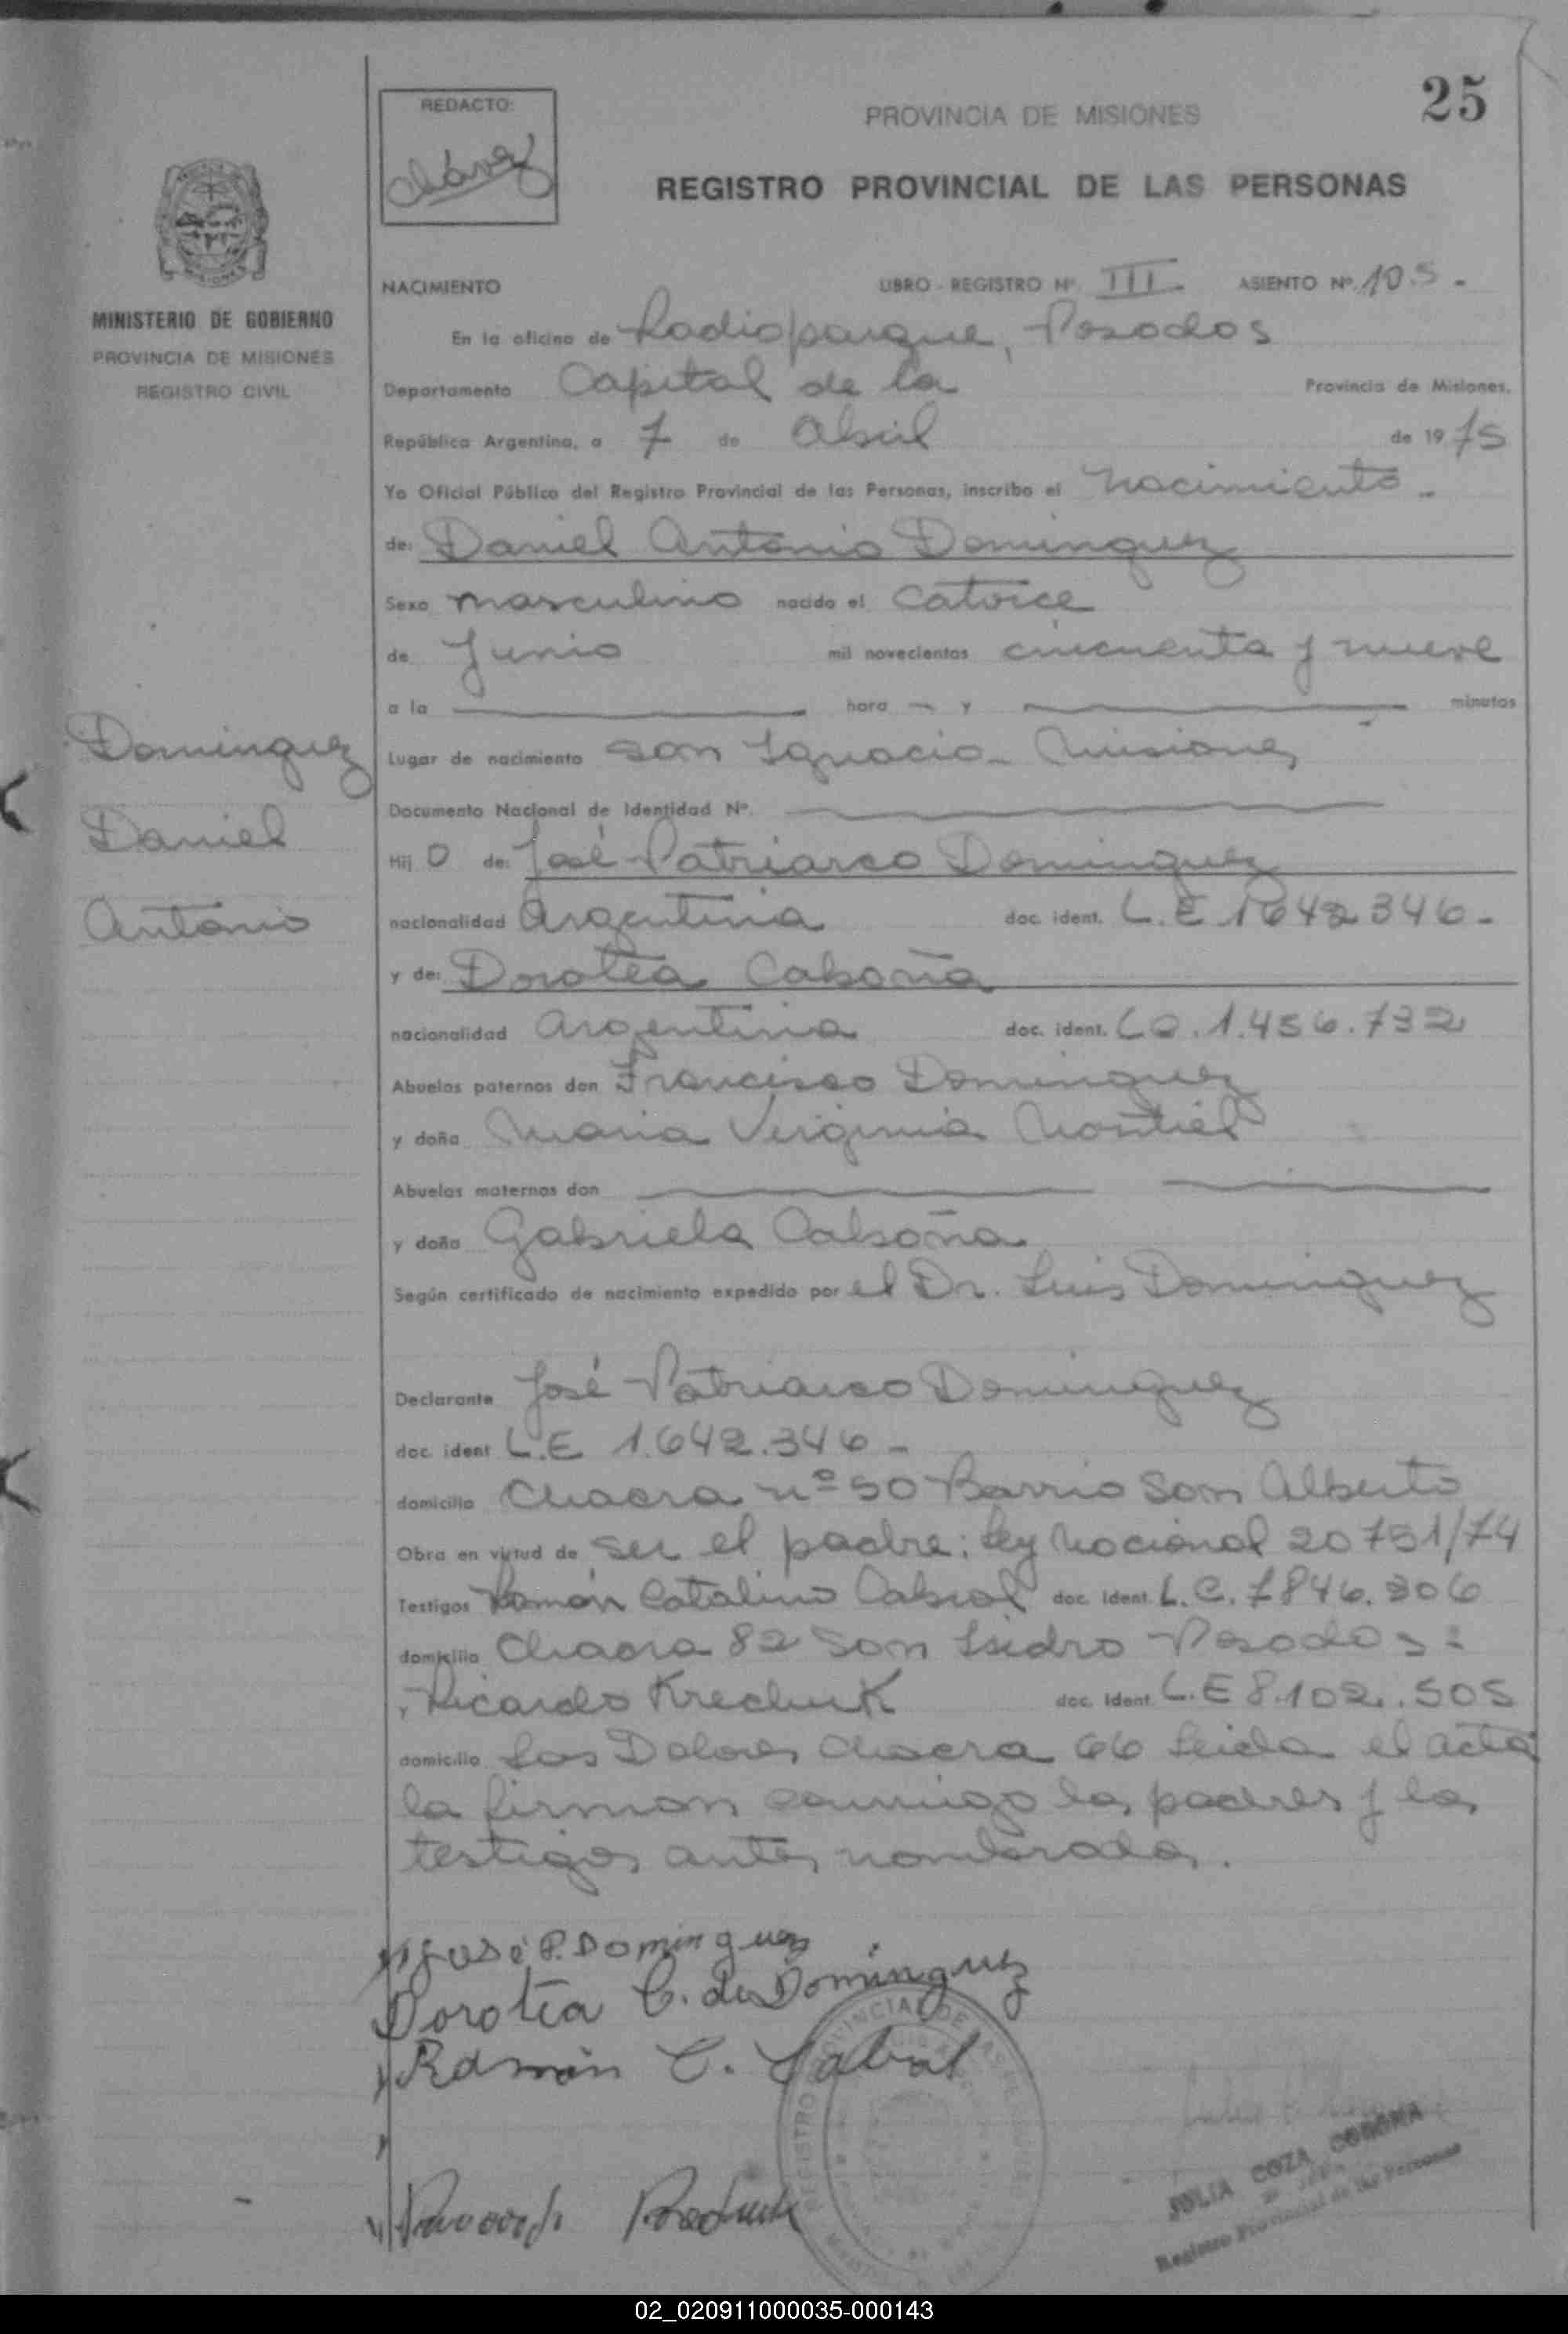 25
REDACTO:
Chávez
PROVINCIA DE MISIONES
REGISTRO PROVINCIAL DE LAS PERSONAS
MINISTERIO DE GOBIERNO
PROVINCIA DE MISIONES
REGISTRO CIVIL
NACIMIENTO LIBRO - REGISTRO Nº. III - ASIENTO Nº. 105 -
En la oficina de Radioparque, Posadas
Departamento Capital de la Provincia de Misiones,
República Argentina, a 7 de Abril de 1975
Yo Oficial Público del Registro Provincial de las Personas, inscribo el nacimiento -
de: Daniel Antonio Dominguez
Sexo masculino nacido el catorce
de Junio mil novecientos cincuenta y nueve
a la hora y minutos
Dominguez
Daniel
Antonio
Lugar de nacimiento San Ignacio - Misiones
Documento Nacional de Identidad Nº.
Hij o de: José Patriarco Dominguez
nacionalidad Argentina doc. ident. L.E 1642346 -
y de: Dorotea Cabaña
nacionalidad Argentina doc. ident. LC. 1.456.732
Abuelos paternos don Francisco Dominguez
y doña Maria Virginia Montiel
Abuelos maternos don
y doña Gabriela Cabaña
Según certificado de nacimiento expedido por el Dr. Luis Dominguez
Declarante José Patriarco Dominguez
doc. ident L.E 1.642.346 -
domicilio Chacra nº 50 Barrio San Alberto
Obra en virtud de ser el padre: Ley Nacional 20751/74
Testigos Ramón Catalino Cabral doc. ident. L.E. 7846.306
domicilio Chacra 82 San Isidro Posadas:
y Ricardo Krechuk doc. ident. L.E 8.102.505
domicilio Las Dolores Chacra 66 Leida el acta
la firman conmigo los padres y los
testigos antes nombrados.
José P. Dominguez
Dorotea C. de Dominguez
Ramón C. Cabral
JULIA COZA CORONA
Registro Provincial de las Personas
02_020911000035-000143